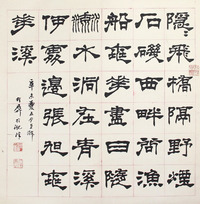 隱〻飛橋隔野煙
石磯西畔問漁
船桃華盡日隨
流水洞在青溪
何處邊張旭桃
華溪
辛未夏